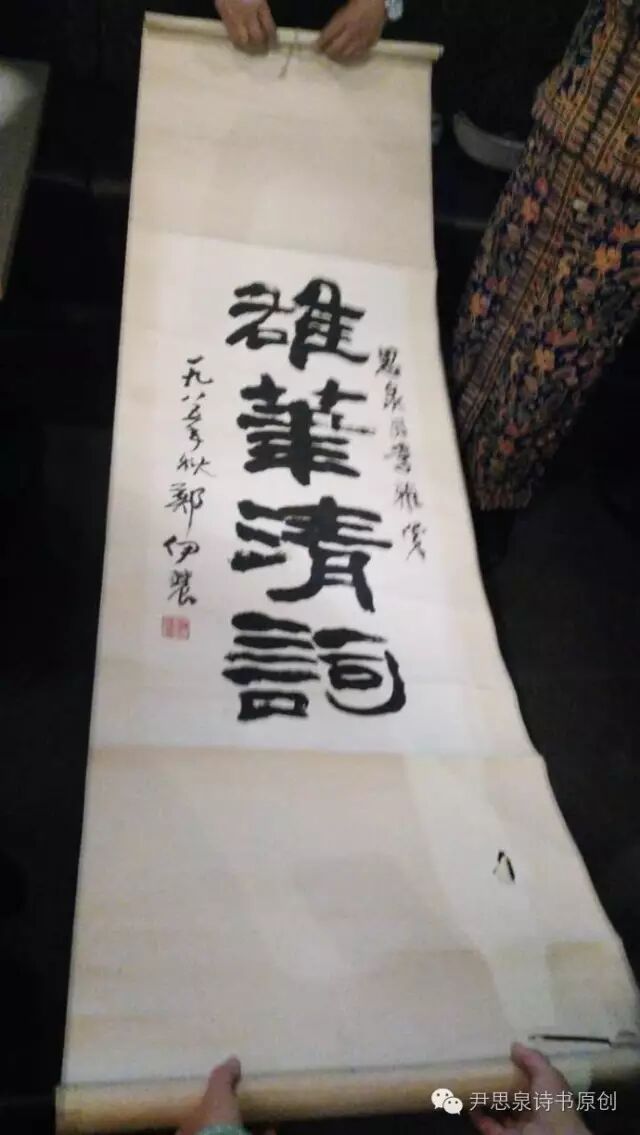 思泉雅
雄筆清詞
一九八五年秋 鄭伯農
尹思泉诗书原创